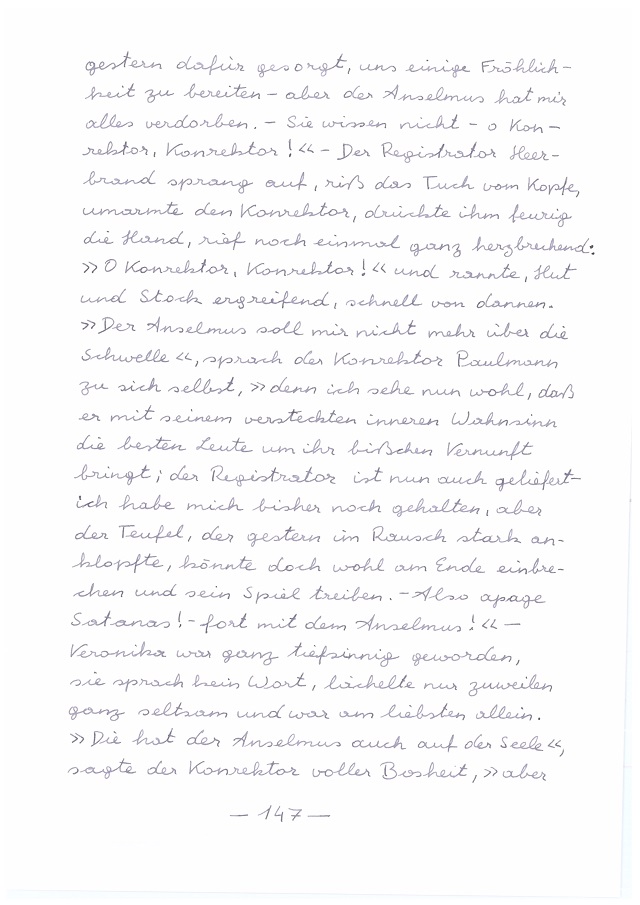 gestern dafür gesorgt, uns einige Fröhlich-
keit zu bereiten – aber der Anselmus hat mir
alles verdorben. – Sie wissen nicht – o Kon-
rektor, Konrektor!« – Der Registrator Heer-
brand sprang auf, riß das Tuch vom Kopfe,
umarmte den Konrektor, drückte ihm feurig
die Hand, rief noch einmal ganz herzbrechend:
»O Konrektor, Konrektor!« und rannte, Hut
und Stock ergreifend, schnell von dannen.
»Der Anselmus soll mir nicht mehr über die
Schwelle«, sprach der Konrektor Paulmann
zu sich selbst, »denn ich sehe nun wohl, daß
er mit seinem versteckten inneren Wahnsinn
die besten Leute um ihr bißchen Vernunft
bringt; der Registrator ist nun auch geliefert –
ich habe mich bisher noch gehalten, aber
der Teufel, der gestern im Rausch stark an-
klopfte, könnte doch wohl am Ende einbre-
chen und sein Spiel treiben. – Also apage
Satanas! – fort mit dem Anselmus!« –
Veronika war ganz tiefsinnig geworden,
sie sprach kein Wort, lächelte nur zuweilen
ganz seltsam und war am liebsten allein.
»Die hat der Anselmus auch auf der Seele«,
sagte der Konrektor voller Bosheit, »aber
– 147 –